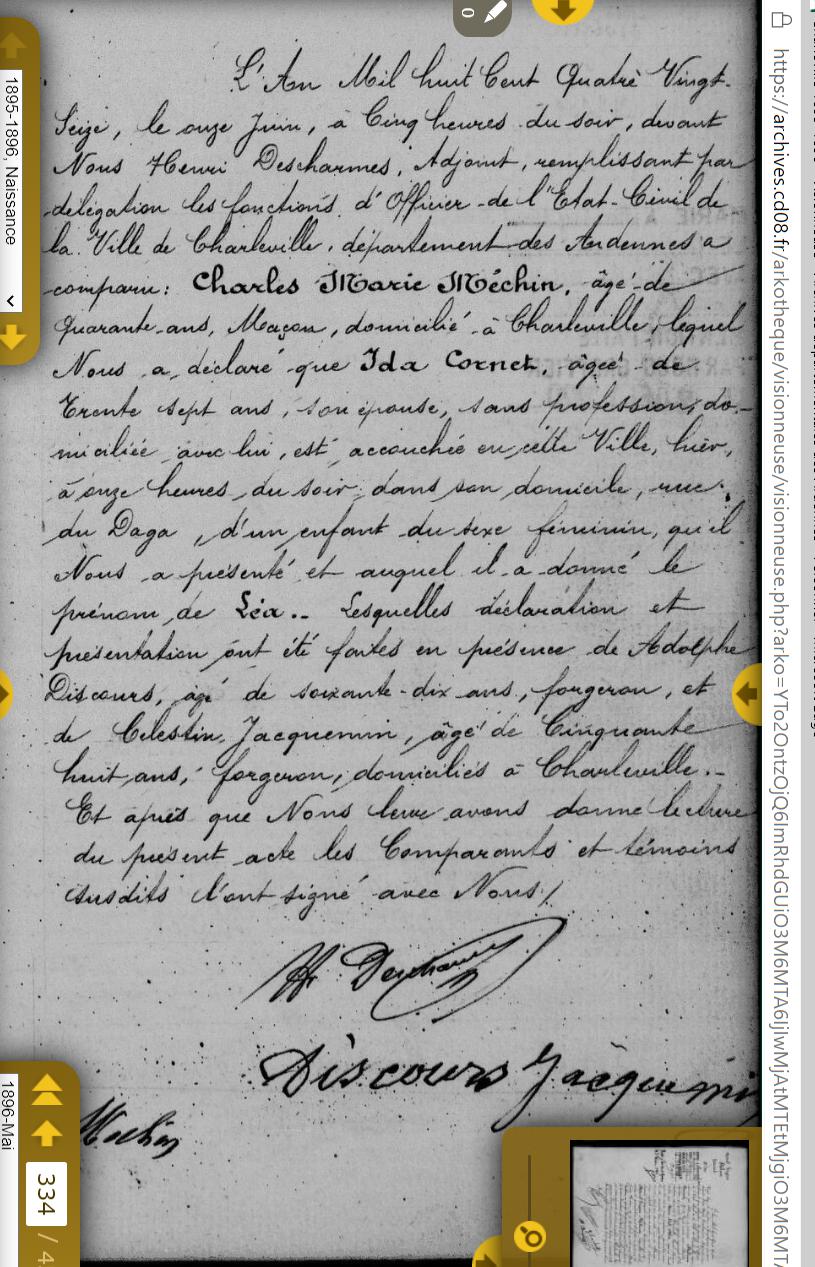 L'An Mil huit Cent Quatre Vingt-
Seize, le onze Juin, à Cinq heures du soir, devant
Nous Henri Descharmes, Adjoint, remplissant par
délégation les fonctions d'Officier de l'Etat-Civil de
la Ville de Charleville, département des Ardennes a
comparu: Charles Marie Méchin, âgé de
Quarante ans, Maçon, domicilié à Charleville, lequel
Nous a déclaré que Ida Cornet, âgée de
Trente sept ans, son épouse, sans profession, do-
miciliée avec lui, est accouchée en cette Ville, hier,
à onze heures du soir dans son domicile, rue
du Daga, d'un enfant du sexe féminin, qu'il
Nous a présenté et auquel il a donné le
prénom de Léa.. Lesquelles déclaration et
présentation ont été faites en présence de Adolphe
Discours, âgé de soixante-dix ans, forgeron, et
de Célestin Jacquemin, âgé de Cinquante
huit ans, forgeron, domiciliés à Charleville.-
Et après que Nous leur avons donné lecture
du présent acte les Comparants et témoins
susdits l'ont signé avec Nous/
H. Descharmes
Discours Jacquemin
Mechin
1895-1896, Naissance
1896-Mai
334 / 4
0
https://archives.cd08.fr/arkotheque/visionneuse/visionneuse.php?arko=